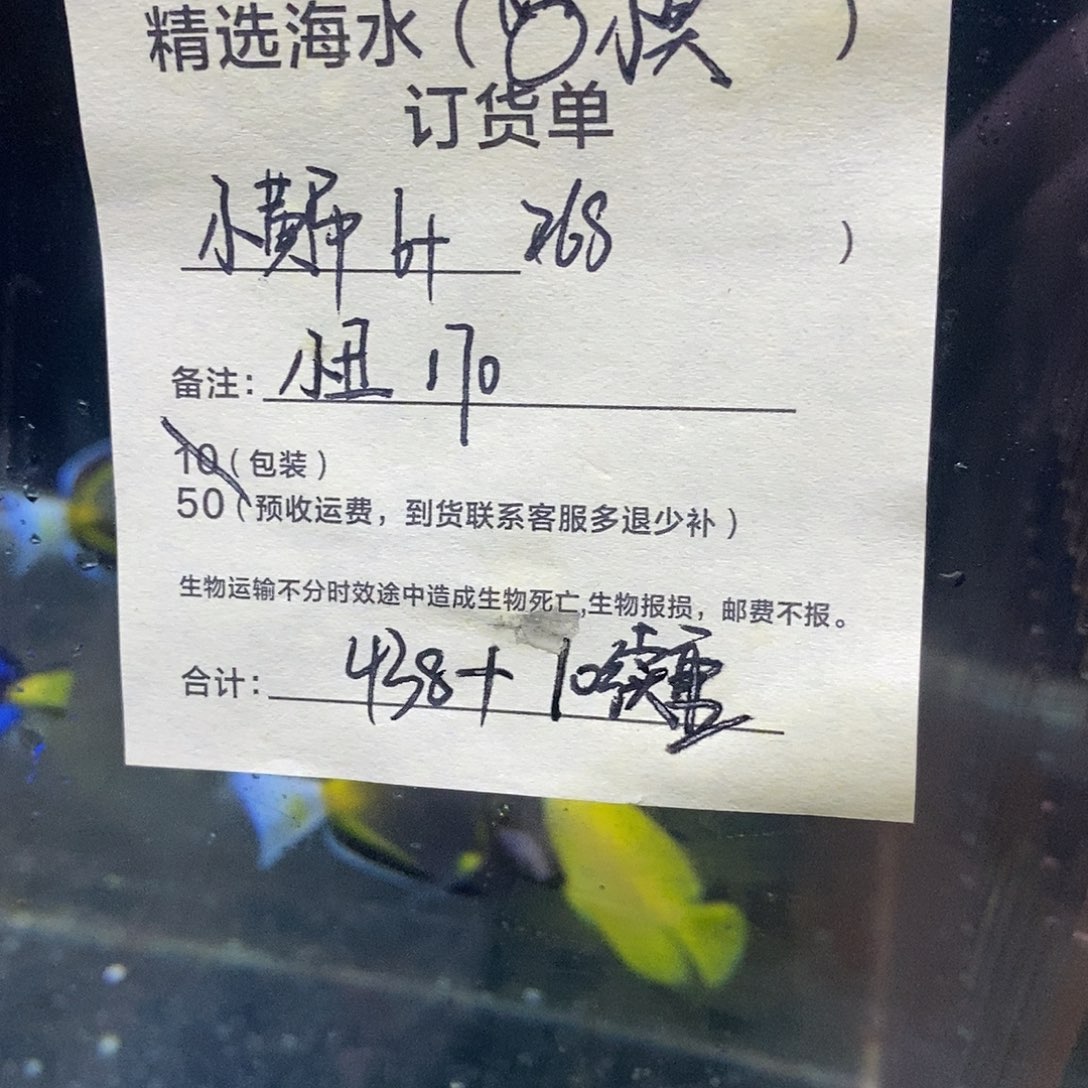 精选海水( )
订货单
小黄 6+ 268 )
备注: 小丑 170
10(包装)
50(预收运费，到货联系客服多退少补)
生物运输不分时效途中造成生物死亡,生物报损，邮费不报。
合计: 438+10